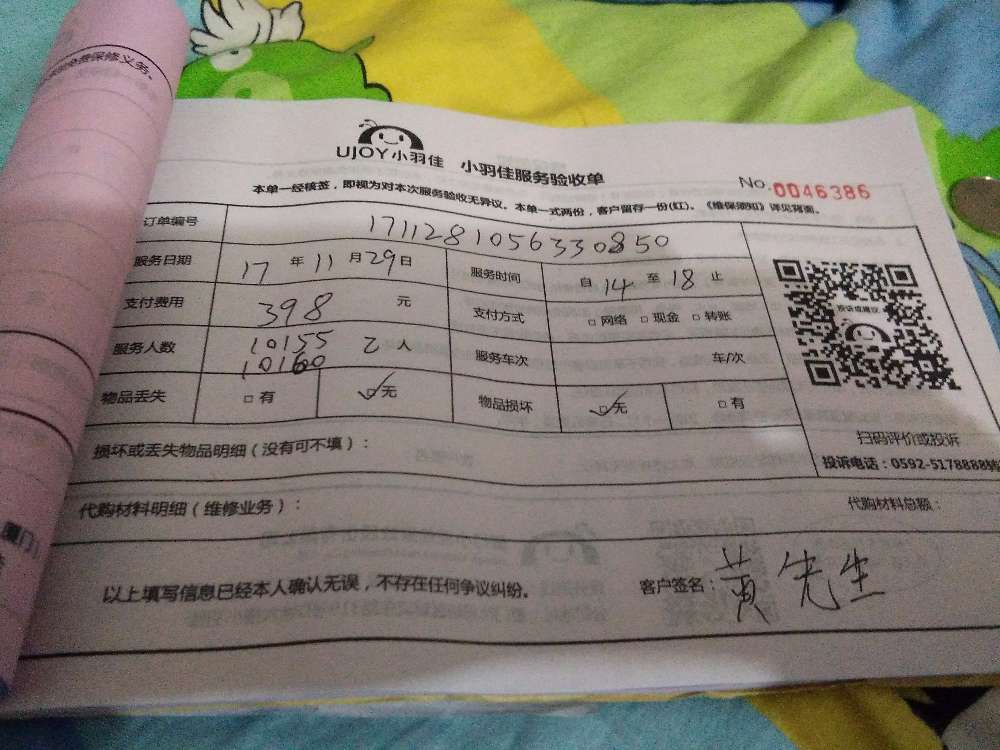 免费保修义务。
UJOY小羽佳 小羽佳服务验收单
No.0046386
本单一经核签，即视为对本次服务验收无异议。本单一式两份，客户留存一份(红)。《维保须知》详见背面。
订单编号 1711281056330850
服务日期 17 年 11 月 29 日 服务时间 自 14 至 18 止
支付费用 398 元 支付方式 □ 网络 □ 现金 □ 转账
服务人数 10155 10160 乙 人 服务车次 车/次
物品丢失 □ 有 ☑ 无 物品损坏 ☑ 无 □ 有
投诉或建议
扫码评价或投诉
投诉电话：0592-5178888转
损坏或丢失物品明细（没有可不填）：
代购材料明细（维修业务）： 代购材料总额：
以上填写信息已经本人确认无误，不存在任何争议纠纷。 客户签名：黄先生
厦门